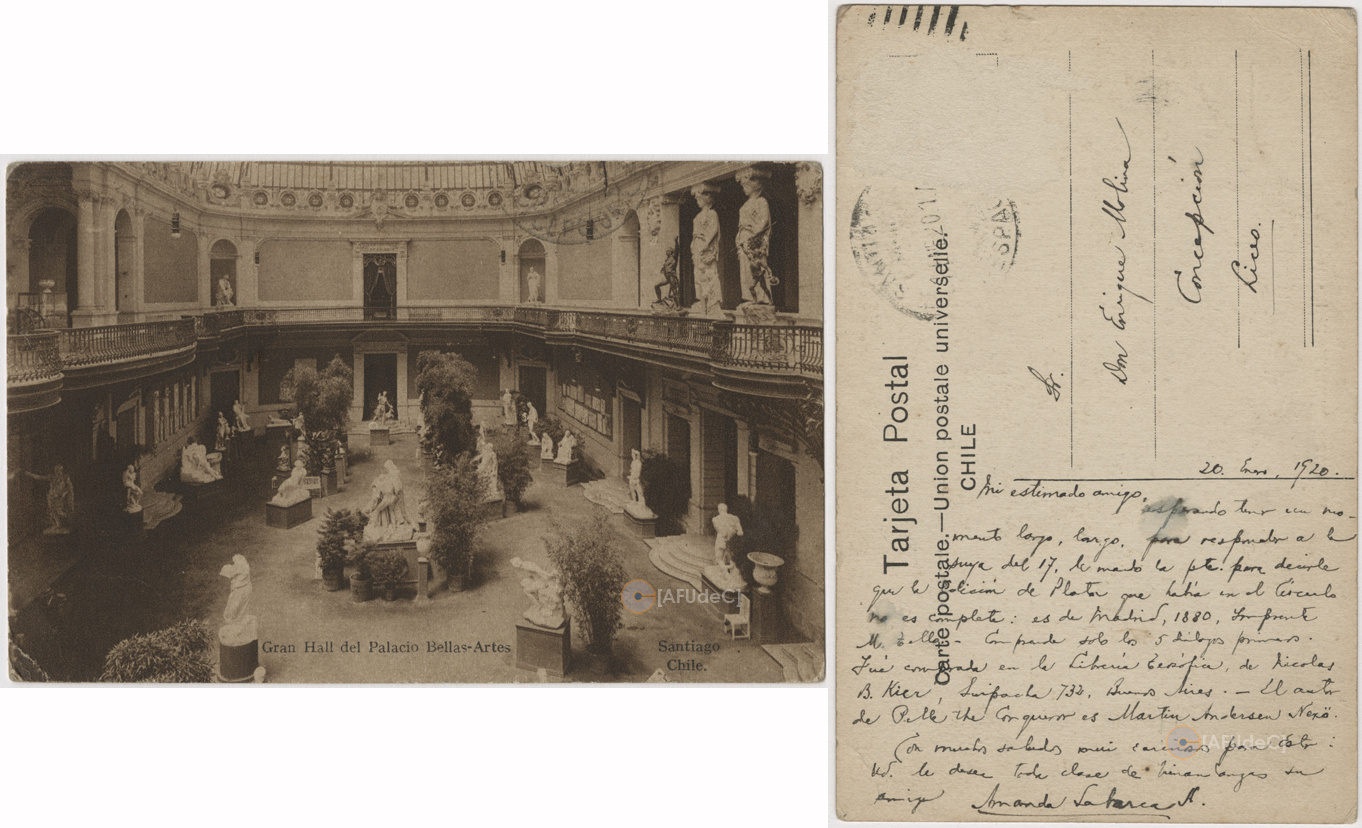 Gran Hall del Palacio Bellas-Artes
Santiago
Chile.
[AFUdeC]
Tarjeta Postal
Carte postale.—Union postale universelle.
CHILE
Sr.
Don Enrique Molina
Concepción
Liceo.
20. Enero, 1920.
Mi estimado amigo,
esperando tener un mo-
mento largo, largo, para responder a la
suya del 17, le mando la pte. para decirle
que la edición de Platón que había en el Círculo
no es completa: es de Madrid, 1880, Imprenta
M. - Comprende solo los 5 diálogos primeros.
Fué comprada en la Librería Teosófica, de Nicolas
B. Kier, Suipacha 732, Buenos Aires. - El autor
de Pelle the Conqueror es Martin Andersen Nexö.
Con muchos saludos mui cariñosos para
Ud. le desea toda clase de bienandanzas su
amiga Amanda Labarca H.
[AFUdeC]